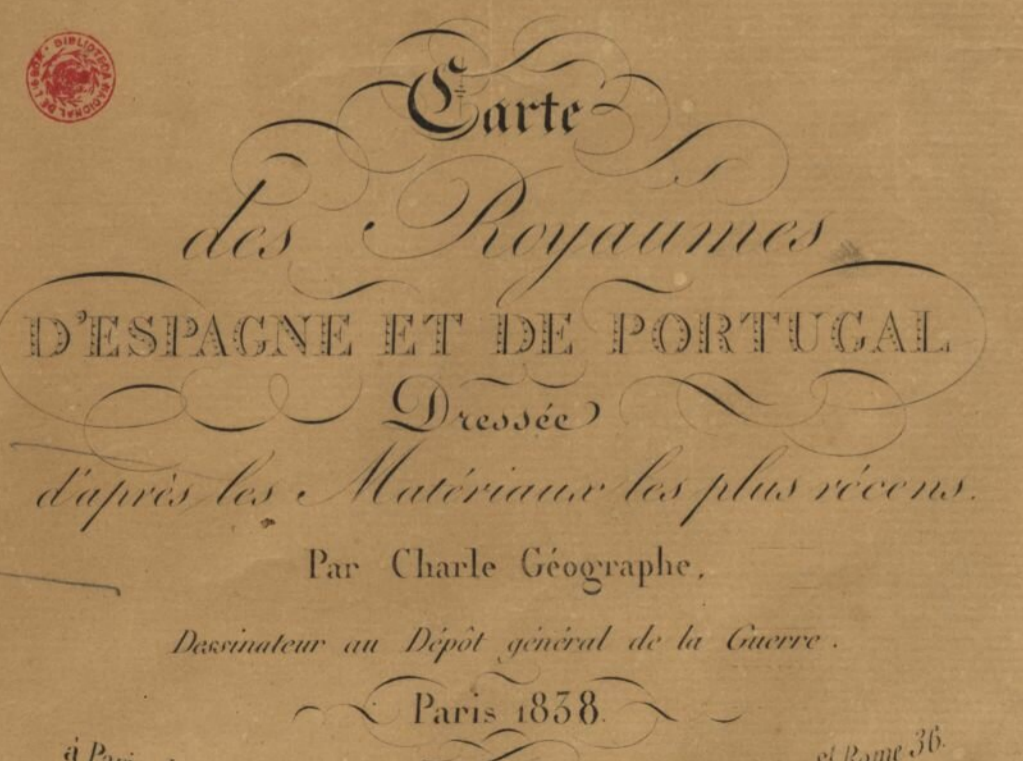 Carte
des Royaumes
D'ESPAGNE ET DE PORTUGAL
Dressée
d'après les Matériaux les plus récens.
Par Charle Géographe,
Dessinateur au Dépôt général de la Guerre.
Paris 1838.
à et Rome 36.